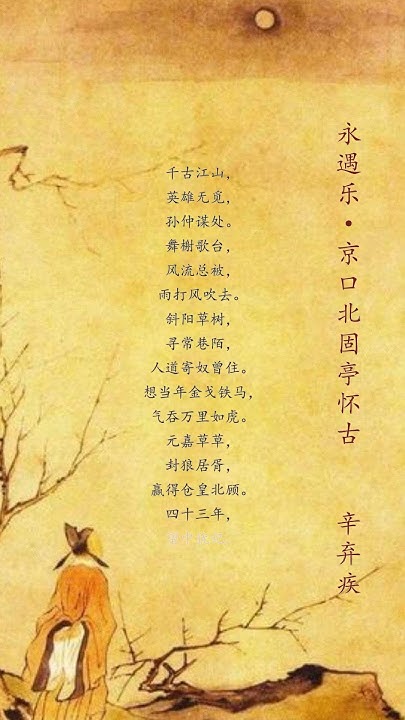 永遇乐·京口北固亭怀古
辛弃疾
千古江山，
英雄无觅，
孙仲谋处。
舞榭歌台，
风流总被，
雨打风吹去。
斜阳草树，
寻常巷陌，
人道寄奴曾住。
想当年金戈铁马，
气吞万里如虎。
元嘉草草，
封狼居胥，
赢得仓皇北顾。
四十三年，